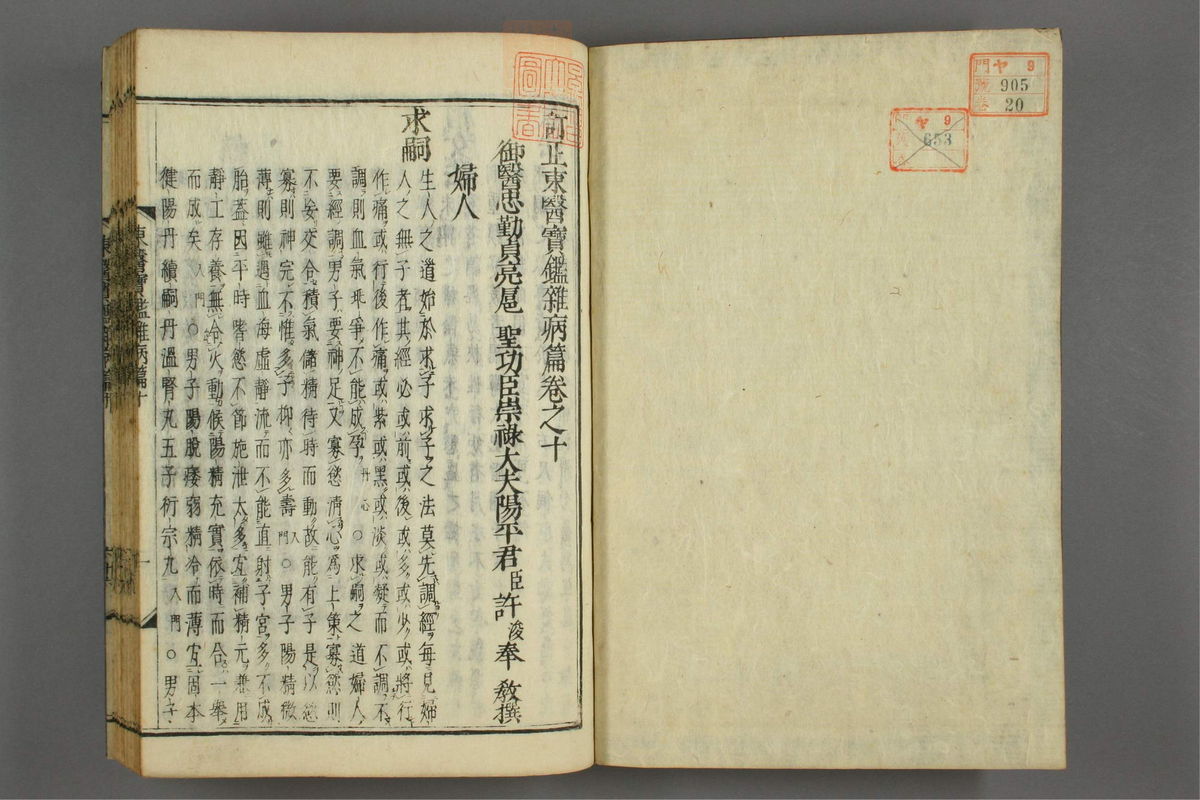 門 ヤ 9
號 905
卷 20
ヤ 9
653
訂正東醫寶鑑雜病篇卷之十
御醫忠勤貞亮扈 聖功臣崇祿大夫陽平君臣許浚奉 教撰
婦人
求嗣
生人之道始於求子求子之法莫先調經每見婦
人之無子者其經必或前或後或多或少或將行
作痛或行後作痛或紫或黑或淡或凝而不調不
調則血氣乖爭不能成孕丹心○求嗣之道婦人
要經調男子要神足又寡慾清心爲上策寡慾則
不妄交合積氣儲精待時而動故能有子是以慾
寡則神完不惟多子抑亦多壽入門○男子陽精微
薄則雖遇血海虛靜流而不能直射子宮多不成
胎蓋因平時嗜慾不節施泄太多宜補精元兼用
靜工存養無令火動候陽精充實依時而合一擧
而成矣入門○男子陽脫痿弱精冷而薄宜固本
健陽丹續嗣丹溫腎丸五子衍宗丸入門○男子
東醫寶鑑雜病篇十
一